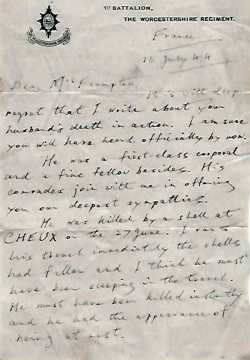 1st BATTALION,
THE WORCESTERSHIRE REGIMENT.
France
16 July 44
Dear Mrs Frampton
It is with deep
regret that I write about your
husband's death in action. I am sure
you will have heard officially by now.
He was a first-class corporal
and a fine fellow besides. His
comrades join with me in offering
you our deepest sympathies.
He was killed by a shell at
CHEUX on the 27 June. I ran to
his trench immediately the shells
had fallen and I think he must
have been sleeping in the trench.
He must have been killed instantly
and he had the appearance of
being at rest.